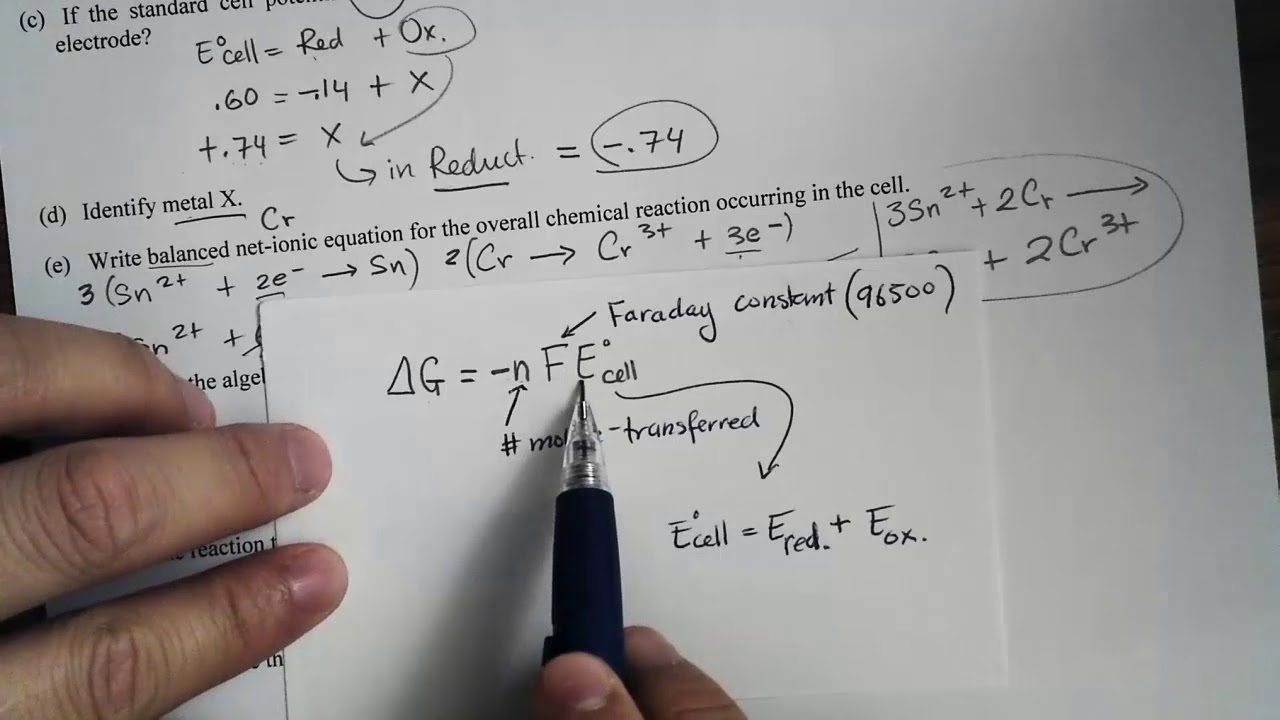 (c) If the standard cell
electrode?
E°cell = Red + Ox.
.60 = -.14 + X
+.74 = X
↳ in Reduct. = -.74
(d) Identify metal X.
Cr
(e) Write balanced net-ionic equation for the overall chemical reaction occurring in the cell.
3(Sn²⁺ + 2e⁻ → Sn) 2(Cr → Cr³⁺ + 3e⁻)
3Sn²⁺ + 2Cr →
+ 2Cr³⁺
2+ +
the
Faraday constant (96500)
ΔG = -nFE°cell
# mol -transferred
E°cell = Ered. + Eox.
reaction